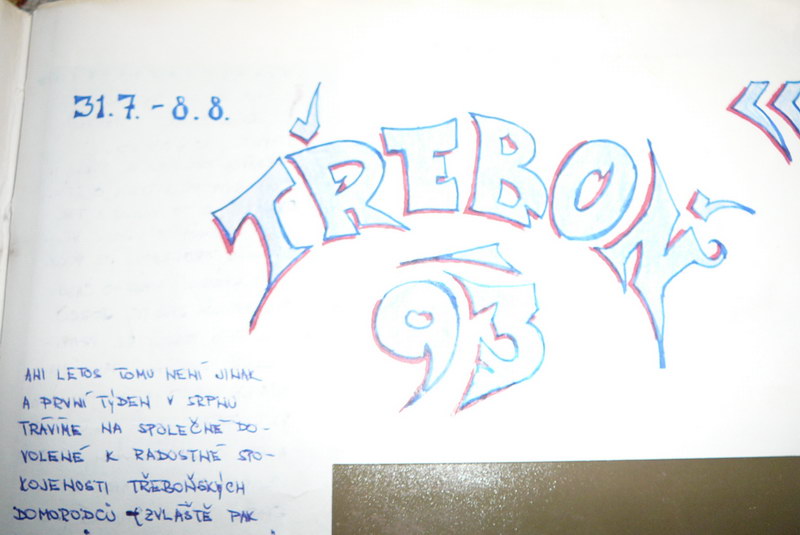 31.7. - 8.8.
TŘEBOŇ
93
ANI LETOS TOMU NENÍ JINAK
A PRVNÍ TÝDEN V SRPNU
TRÁVÍME NA SPOLEČNÉ DO-
VOLENÉ K RADOSTNÉ SPO-
KOJENOSTI TŘEBOŇSKÝCH
DOMORODCŮ (ZVLÁŠTĚ PAK